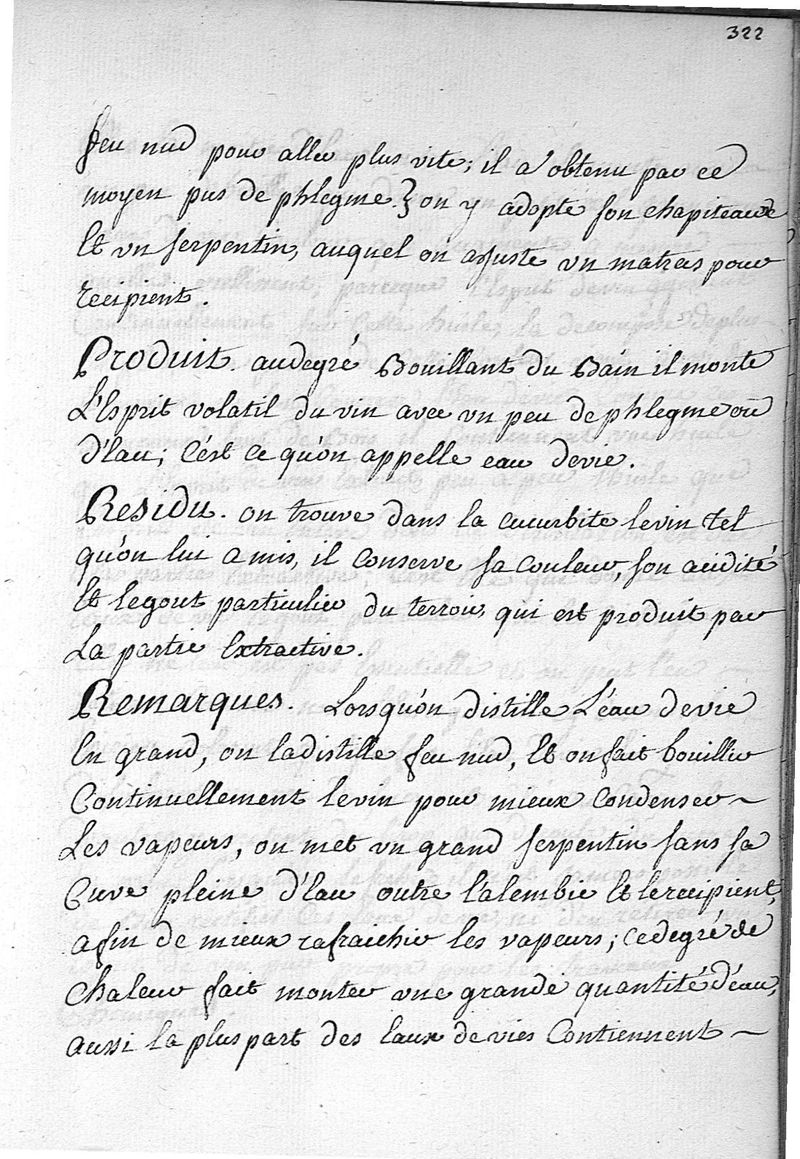 322
feu nud pour aller plus vite; il a obtenu par ce
moyen pus de phlegme.} on y adapte son chapiteau
Et un serpentin, auquel on ajuste un matras pour
recipient.
Produit. audegré Bouillant du Bain il monte
L'Esprit volatil du vin avec un peu de phlegme ou
d'Eau; C'est ce qu'on appelle eau devie.
Residu. on trouve dans la cucurbite levin tel
qu'on lui a mis, il conserve sa couleur, son acidité
Et legout particulier du terroir, qui est produit par
La partie Extractive.
Remarques. Lorsqu'on distille L'eau devie
En grand, on ladistille feu nud, Et on fait bouillir
Continuellement levin pour mieux condenser ~
Les vapeurs, on met un grand serpentin sans sa
Cuve pleine d'Eau outre l'alembic Et lerecipient,
afin de mieux rafraichir les vapeurs; cedegré de
Chaleur fait monter une grande quantité d'eau,
aussi la pluspart des Eaux de vies Contiennent ~